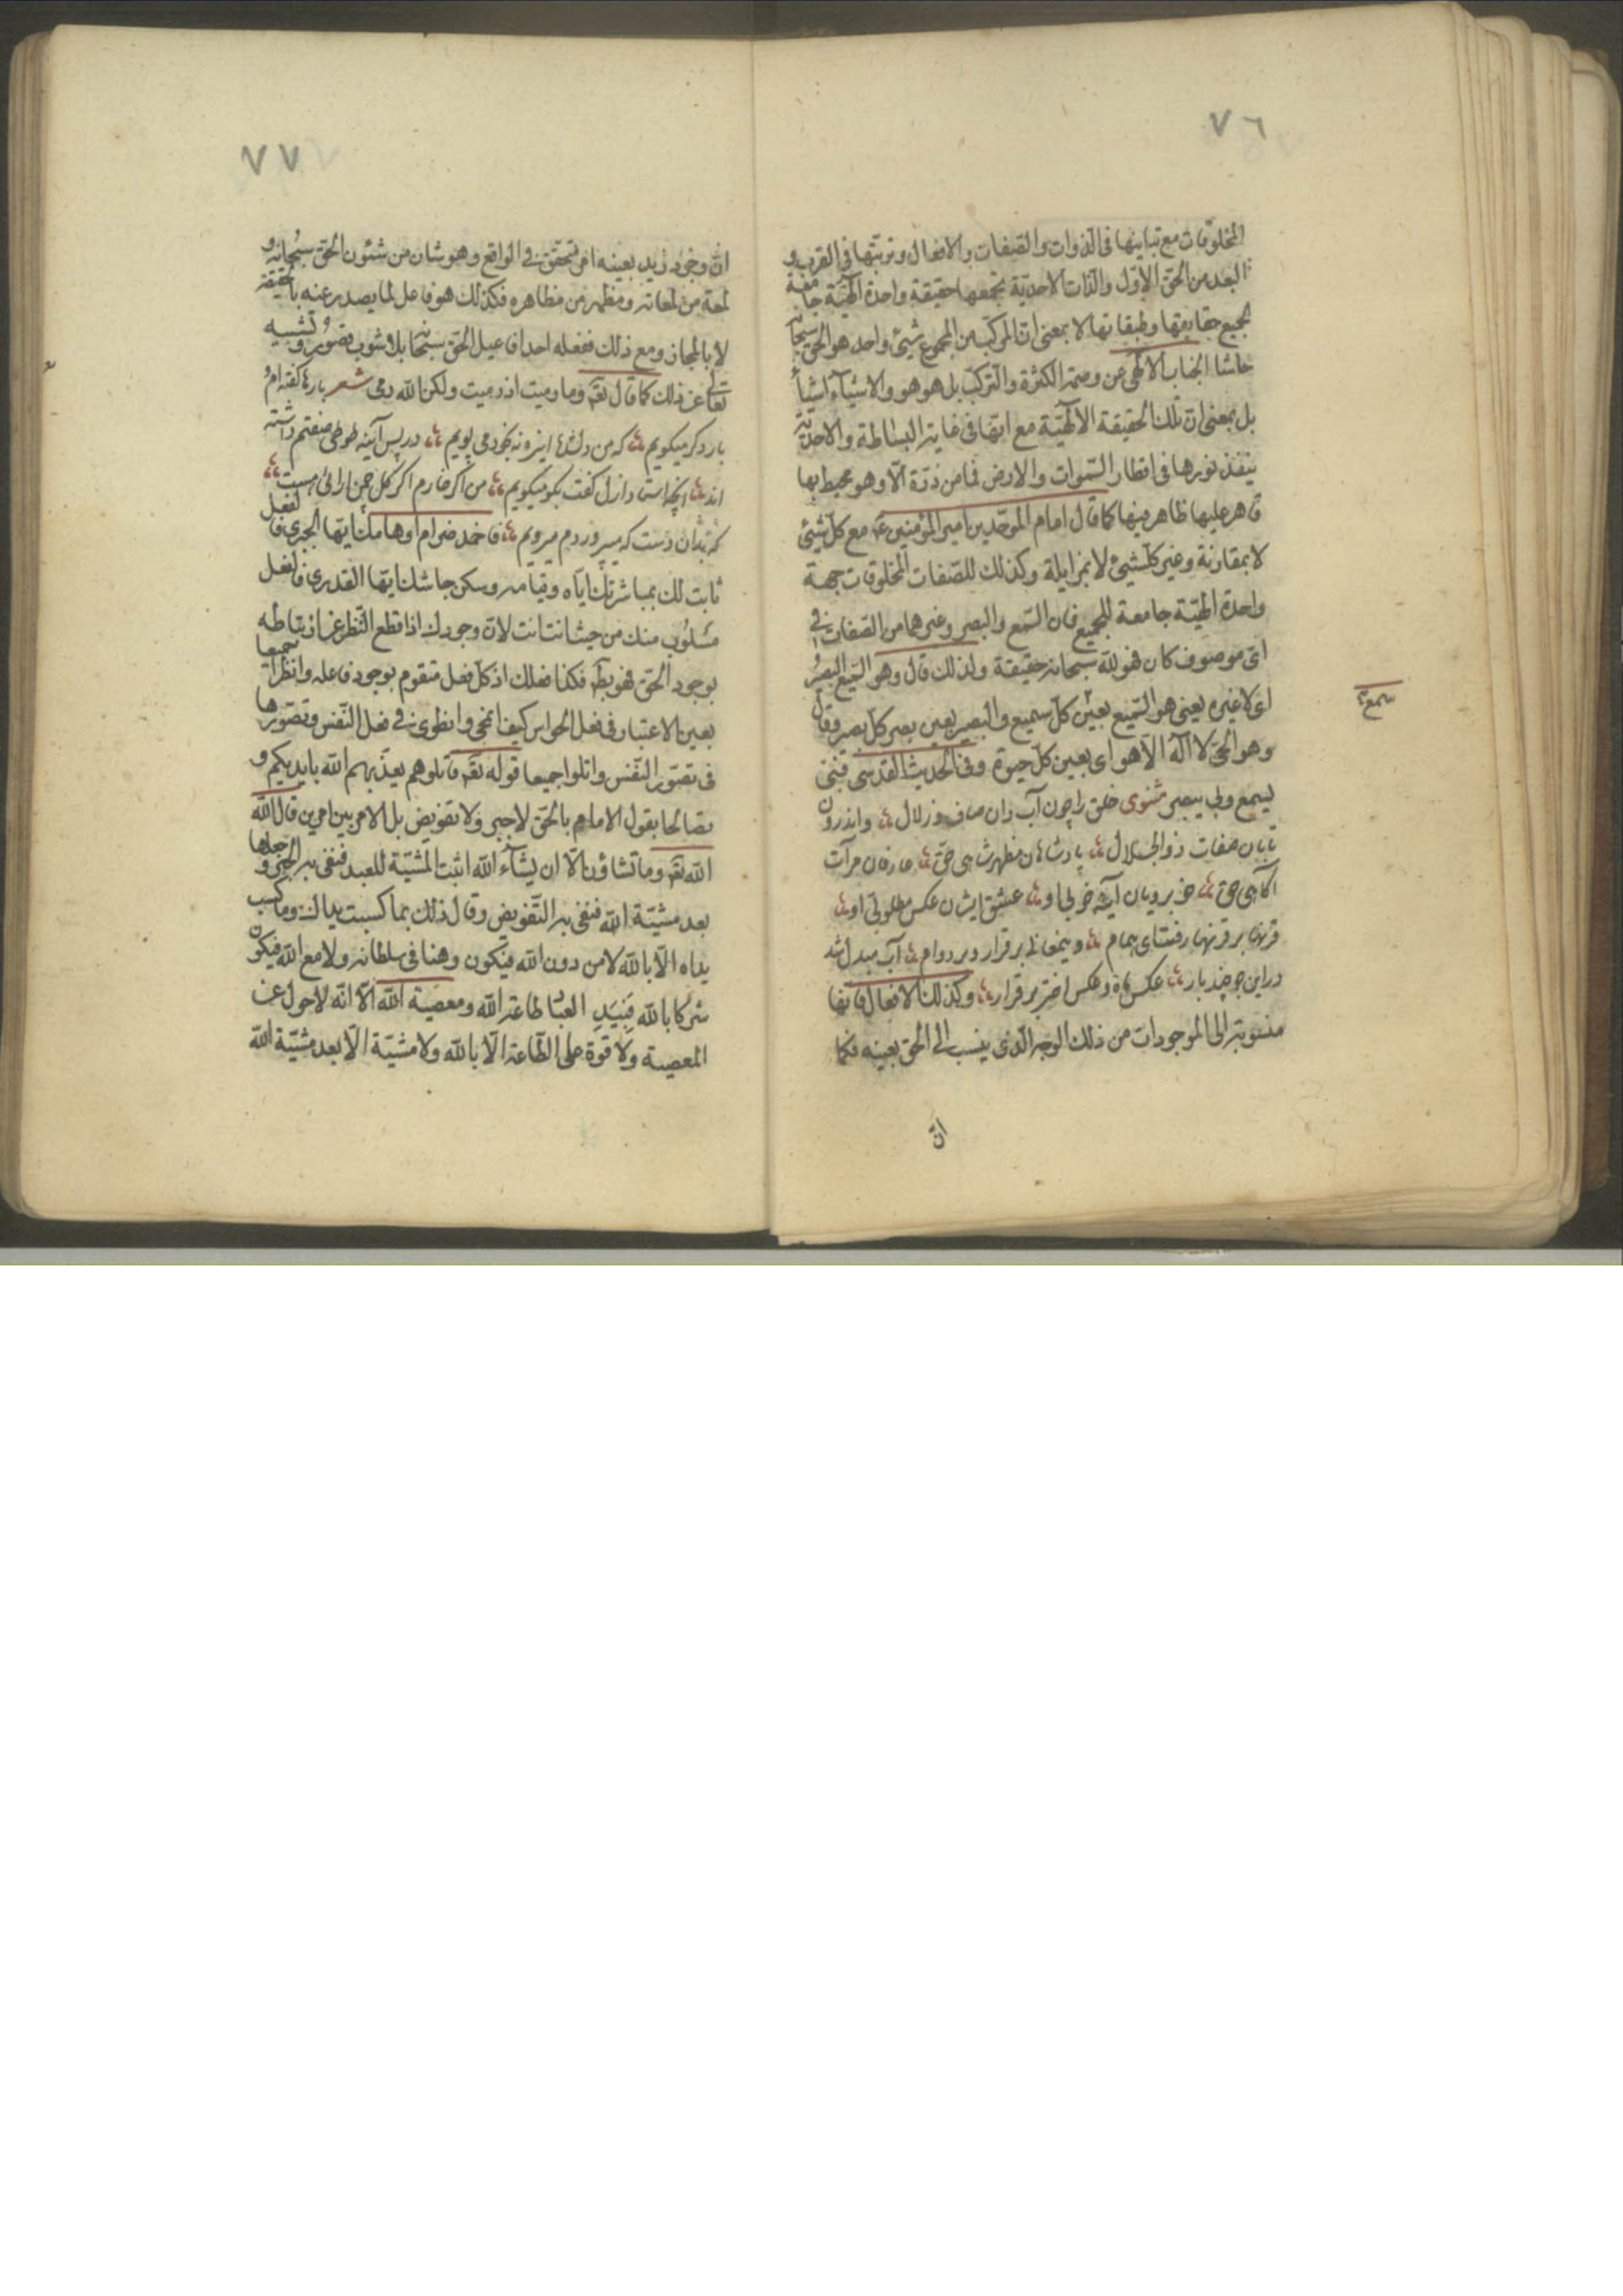 ٧٦
المخلوقات مع تباينها فى الذوات والصفات والافعال وترتبها فى القرب و
البعد من الحق الاول والذات الاحدية تجمعها حقيقة واحدة الهية جامعة
لجميع حقايقها وطبقاتها لا بمعنى ان المركب من المجموع شيئ واحد هو الحق سبحانه
حاشا الجناب الالهى عن وصمة الكثرة والتركيب بل هو هو والاشياء اشياء
بل بمعنى ان تلك الحقيقة الالهية مع انها فى غاية البساطة والاحدية
ينفذ نورها فى اقطار السموات والارض فما من ذرة الا وهو محيط بها
قاهر عليها ظاهر فيها كما قال امام الموحدين امير المؤمنين ع مع كل شيئ
لا بمقارنة وغير كلشيئ لا بمزايلة وكذلك للصفات المخلوقات جهة
واحدة الهية جامعة للجميع فان السمع والبصر وغيرهما من الصفات فى
اى موصوف كان فهو لله سبحانه حقيقة ولذلك قال وهو السميع البصير
اى لا غيره يعنى هو السميع بعين كل سميع والبصير بعين بصر كل بصير وقال
سمع
وهو الحى لا اله الا هو اى بعين كل حيوة وفى الحديث القدسى فبى
يسمع وبى يبصر مثنوى خلق را چون آب دان صاف و زلال واندرون
تابان صفات ذو الجلال پادشاهان مظهر شاهى حق عارفان مرآت
آگاهى حق خوبرويان آينه خوبى او عشق ايشان عكس مطلوبى او
قرنها بر قرنها رفت اى همام وين معانى بر قرار و بر دوام آب مبدل شد
در اين جو چند بار عكس ماه و عكس اختر بر قرار وكذلك الافعال فانها
منسوبة الى الموجودات من ذلك الوجه الذى ينسب الى الحق بعينه فكما
ان
٧٧
ان وجود زيد بعينه امر متحقق فى الواقع وهو شان من شئون الحق سبحانه و
لمعة من لمعاته ومظهر من مظاهره فكذلك هو فاعل لما يصدر عنه بالحقيقة
لا بالمجاز ومع ذلك ففعله احد افاعيل الحق سبحانه بلا شوب قصور وتشبيه
تعالى عن ذلك كما قال تعه وما رميت اذ رميت ولكن الله رمى شعر بارها گفته ام و
بار دگر ميگويم كه من دلشده اين ره نه بخود مى پويم در پس آينه طوطى صفتم داشته
اند آنچه استاد ازل گفت بگو ميگويم من اگر خارم اگر گل چمن ارائى هست
كه بدان دست كه ميپروردم ميرويم فاخمد ضرام اوهامك ايها الجبرى فالفعل
ثابت لك بمباشرتك اياه وقيامه وسكن جاشك ايها القدرى فالفعل
مسلوب منك من حيث انت انت لان وجودك اذا قطع النظر عن ارتباطه
بوجود الحق فهو بط فكذا فعلك اذ كل فعل متقوم بوجود فاعله وانظرا جميعا
بعين الاعتبار فى فعل الحواس كيف انمحى وانطوى فى فعل النفس وتصورها
فى تصور النفس واتلوا جميعا قوله تعه قاتلوهم يعذبهم الله بايديكم و
تصالحا بقول الامام بالحق لا جبر ولا تفويض بل الامر بين امرين قال الله
الله تعه وما تشاؤن الا ان يشاء الله اثبت المشية للعبد فنفى به الجبر وجعلها
بعد مشية الله فنفى به التفويض وقال ذلك بما كسبت يداك وما كسب
يداه الا بالله لا من دون الله فيكون وهنا فى سلطانه ولا مع الله فيكون
شركا بالله فبيد العبد طاعة الله ومعصية الله الا انه لا حول عن
المعصية ولا قوة على الطاعة الا بالله ولا مشية الا بعد مشية الله